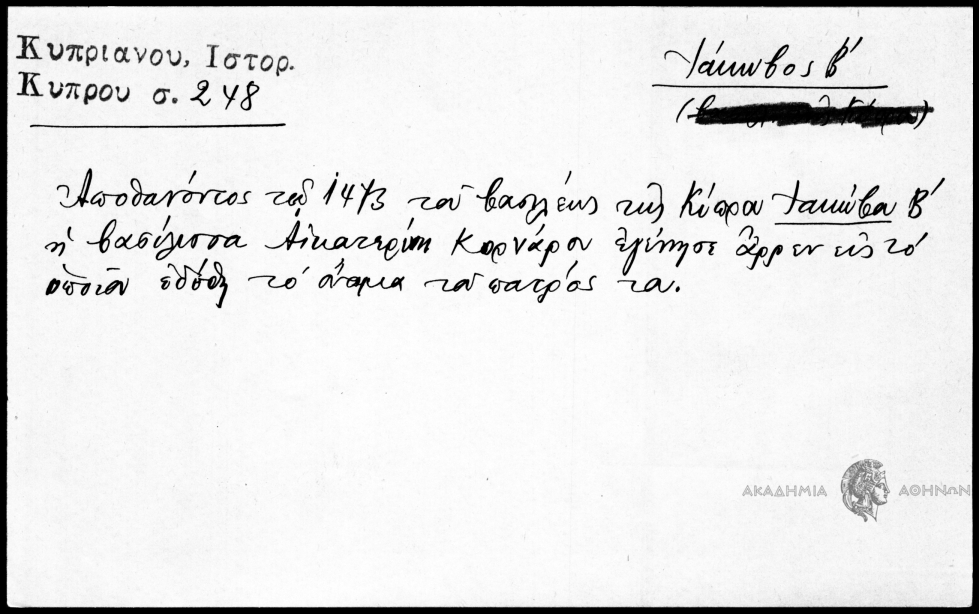 Κυπριανου, Ιστορ.
Κυπρου σ. 248
Ἰάκωβος Β΄
Ἀποθανόντος τῷ 1473 τοῦ βασιλέως τῆς Κύπρου Ἰακώβου Β΄
ἡ βασίλισσα Αἰκατερίνη Κορνάρου ἐγέννησε ἄρρεν εἰς τὸ
ὁποῖον ἐδόθη τὸ ὄνομα τοῦ πατρός του.
ΑΚΑΔΗΜΙΑ ΑΘΗΝΩΝ